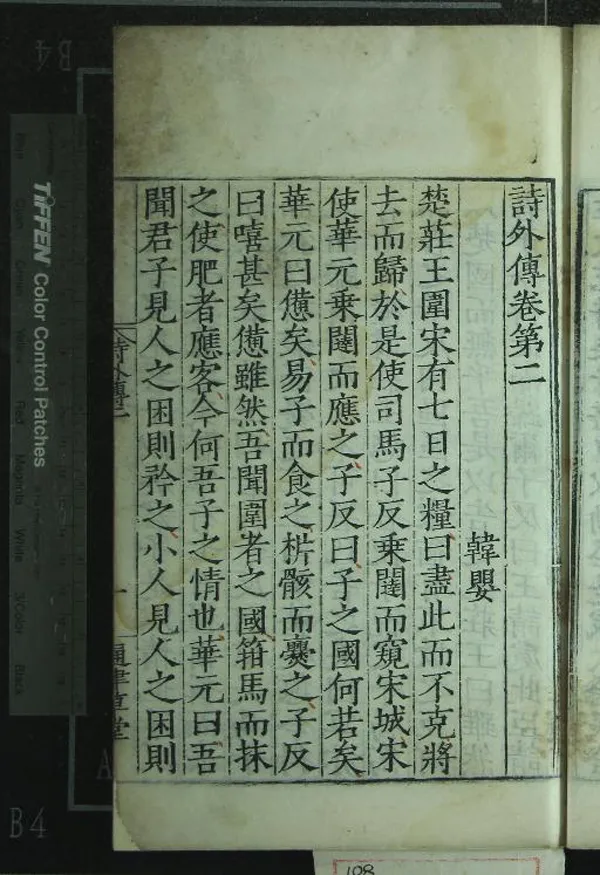 詩外傳卷第二
韓嬰
楚莊王圍宋有七日之糧曰盡此而不克將
去而歸於是使司馬子反乗闉而窺宋城宋
使華元乗闉而應之子反曰子之國何若矣
華元曰憊矣易子而食之㭊骸而爨之子反
曰嘻甚矣憊雖然吾聞圍者之國箝馬而抹
之使肥者應客今何吾子之情也華元曰吾
聞君子見人之困則矜之小人見人之困則
詩外傳二
一
通津草堂
TIFFEN Color Control Patches
Blue Cyan Green Yellow Red Magenta White 3/Color Black
B4
B4
A
108